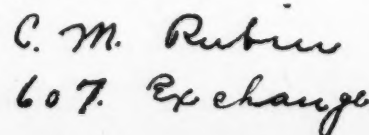 C. M. Rubin
607. Exchange